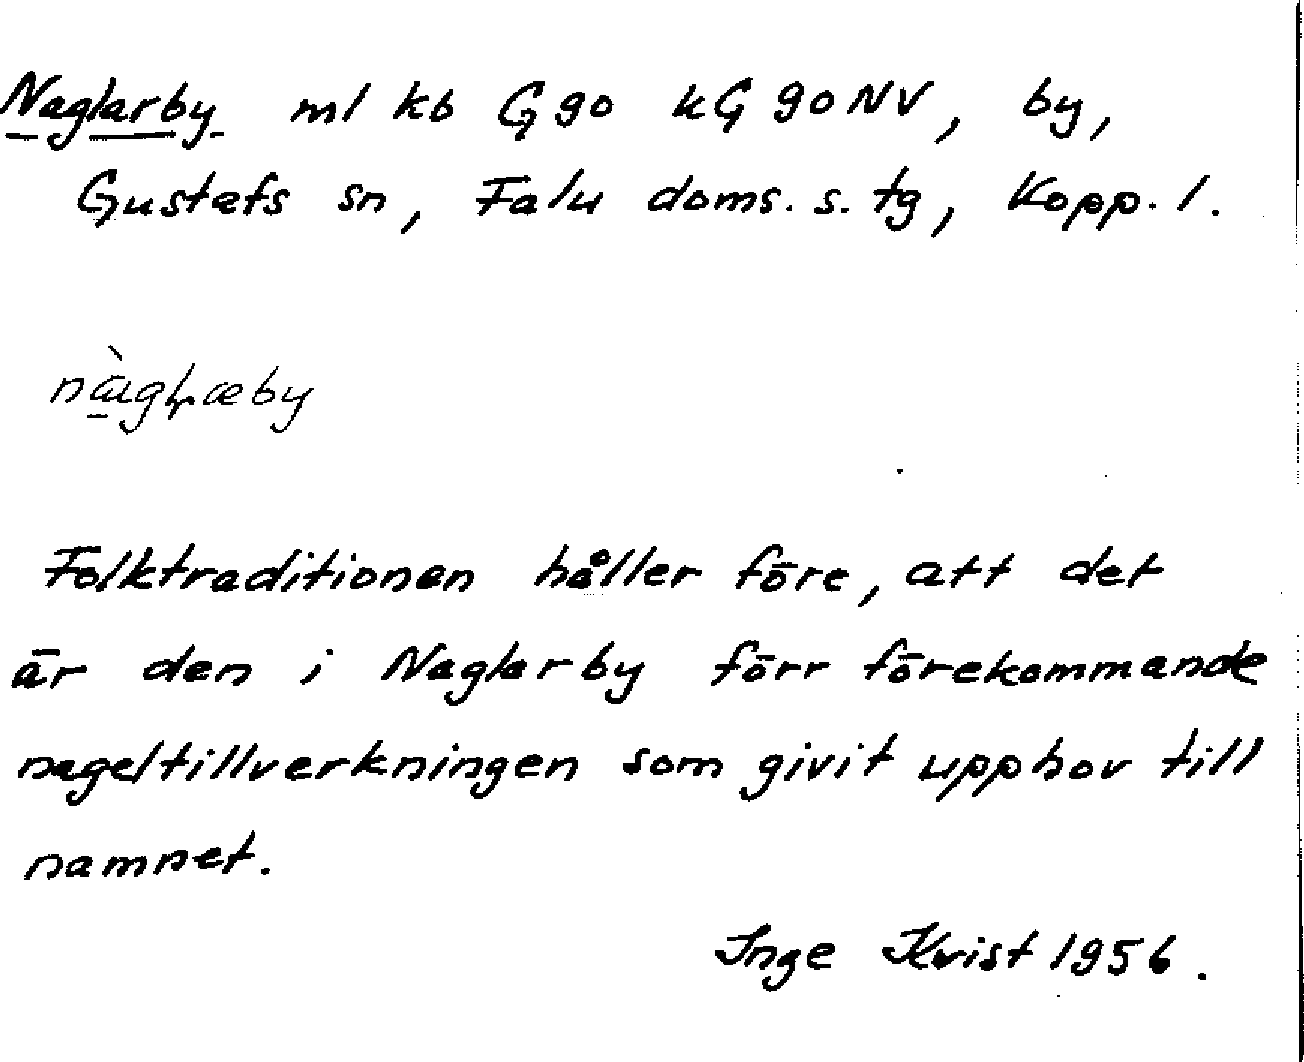 Naglarby ml kb G 90 kG 90 NV, by,
Gustafs sn, Falu doms. s. tg, Kopp. l.
Folktraditionen håller före, att det
är den i Naglarby förr förekommande
nageltillverkningen som givit upphov till
namnet.
Inge Kvist 1956.